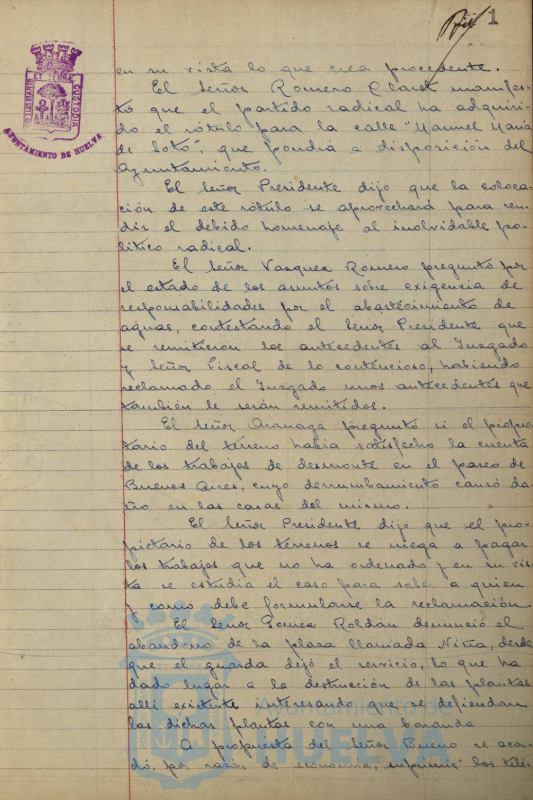 1
PORTUS MARIS ET TERRAE CUSTODIA
AYUNTAMIENTO DE HUELVA
en su vista lo que crea procedente.
El Señor Romero Claret manifes-
tó que el partido radical ha adquiri-
do el rótulo para la calle "Manuel Maria
de Soto", que pondrá a disposición del
Ayuntamiento.
El Señor Presidente dijo que la coloca-
ción de este rótulo se aprovechará para ren-
dir el debido homenaje al inolvidable po-
lítico radical.
El Señor Vazquez Romero preguntó por
el estado de los asuntos sobre exigencia de
responsabilidades por el abastecimiento de
aguas, contestando el Señor Presidente que
se remitieron los antecedentes al Juzgado
y Señor Fiscal de lo contencioso, habiendo
reclamado el Juzgado unos antecedentes que
también le serán remitidos.
El Señor Aranaga preguntó si el propie-
tario del terreno había satisfecho la cuenta
de los trabajos de desmonte en el paseo de
Buenos Aires, cuyo derrumbamiento causó da-
ño en las casas del mismo.
El Señor Presidente dijo que el pro-
pietario de los terrenos se niega a pagar
los trabajos que no ha ordenado y en su vis-
ta se estudia el caso para saber a quien
y como debe formularse la reclamación.
El Señor Ponce Roldán denunció el
abandono de la plaza llamada Niña, desde
que el guarda dejó el servicio, lo que ha
dado lugar a la destrucción de las plantas
alli existente interesando que se defiendan
las dichas plantas con una baranda
A propuesta del Señor Romero se acor-
dó, por razón de economía, suprimir los telé-
Ayuntamiento de
HUELVA